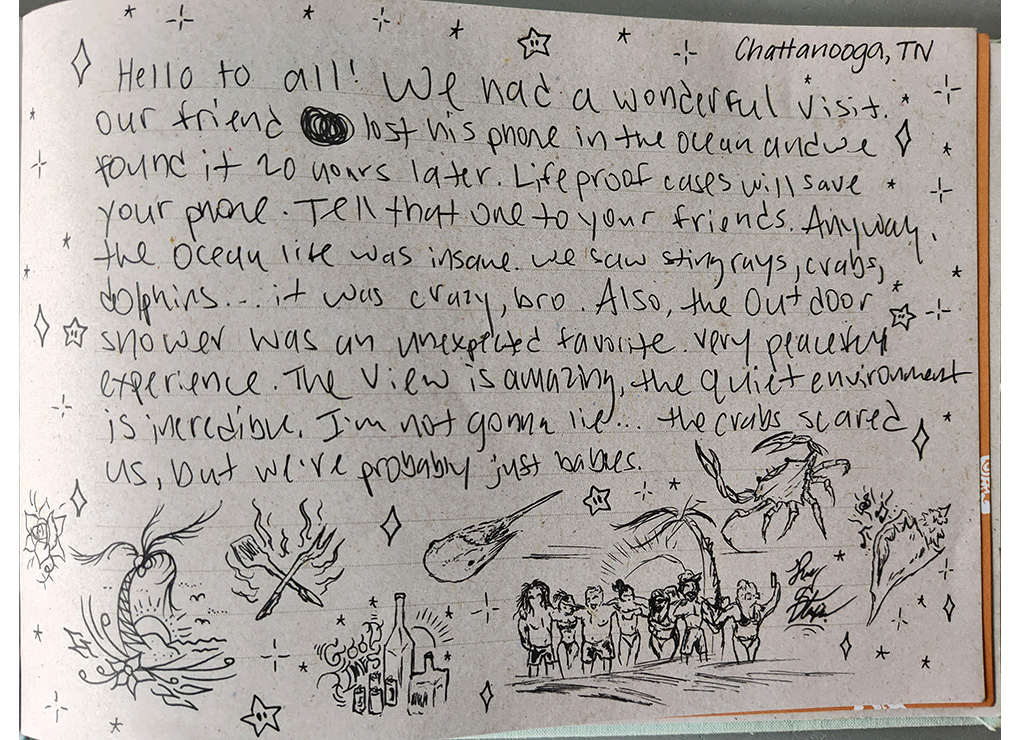 Chattanooga, TN
Hello to all! We had a wonderful visit.
our friend lost his phone in the ocean and we
found it 20 hours later. Lifeproof cases will save
your phone. Tell that one to your friends. Anyway,
the ocean life was insane. we saw stingrays, crabs,
dolphins... it was crazy, bro. Also, the outdoor
shower was an unexpected favorite. very peaceful
experience. The view is amazing, the quiet environment
is incredible. I'm not gonna lie... the crabs scared
us, but we're probably just babies.
GOOD